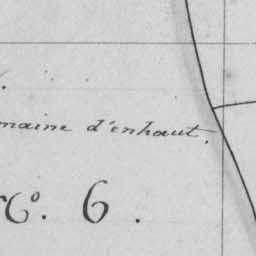 maine d'enhaut.
No. 6.